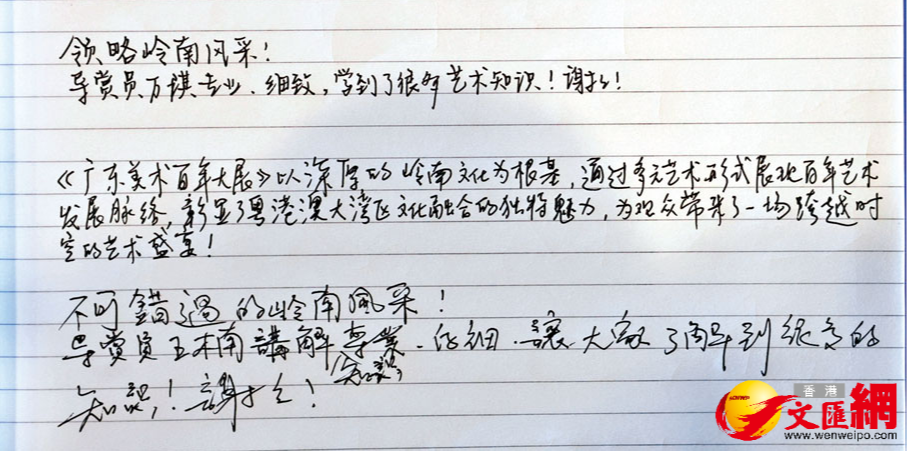 领略岭南风采！
导赏员万祺专业、细致，学到了很多艺术知识！谢谢！
《广东美术百年大展》以深厚的岭南文化为根基，通过多元艺术形式展现百年艺术
发展脉络，彰显了粤港澳大湾区文化融合的独特魅力，为观众带来了一场跨越时
空的艺术盛宴！
不可錯過的岭南風采！
导賞員王木南講解專業、仔细，讓大家了解到很多的
知識！謝谢！
香港
文匯網
www.wenweipo.com